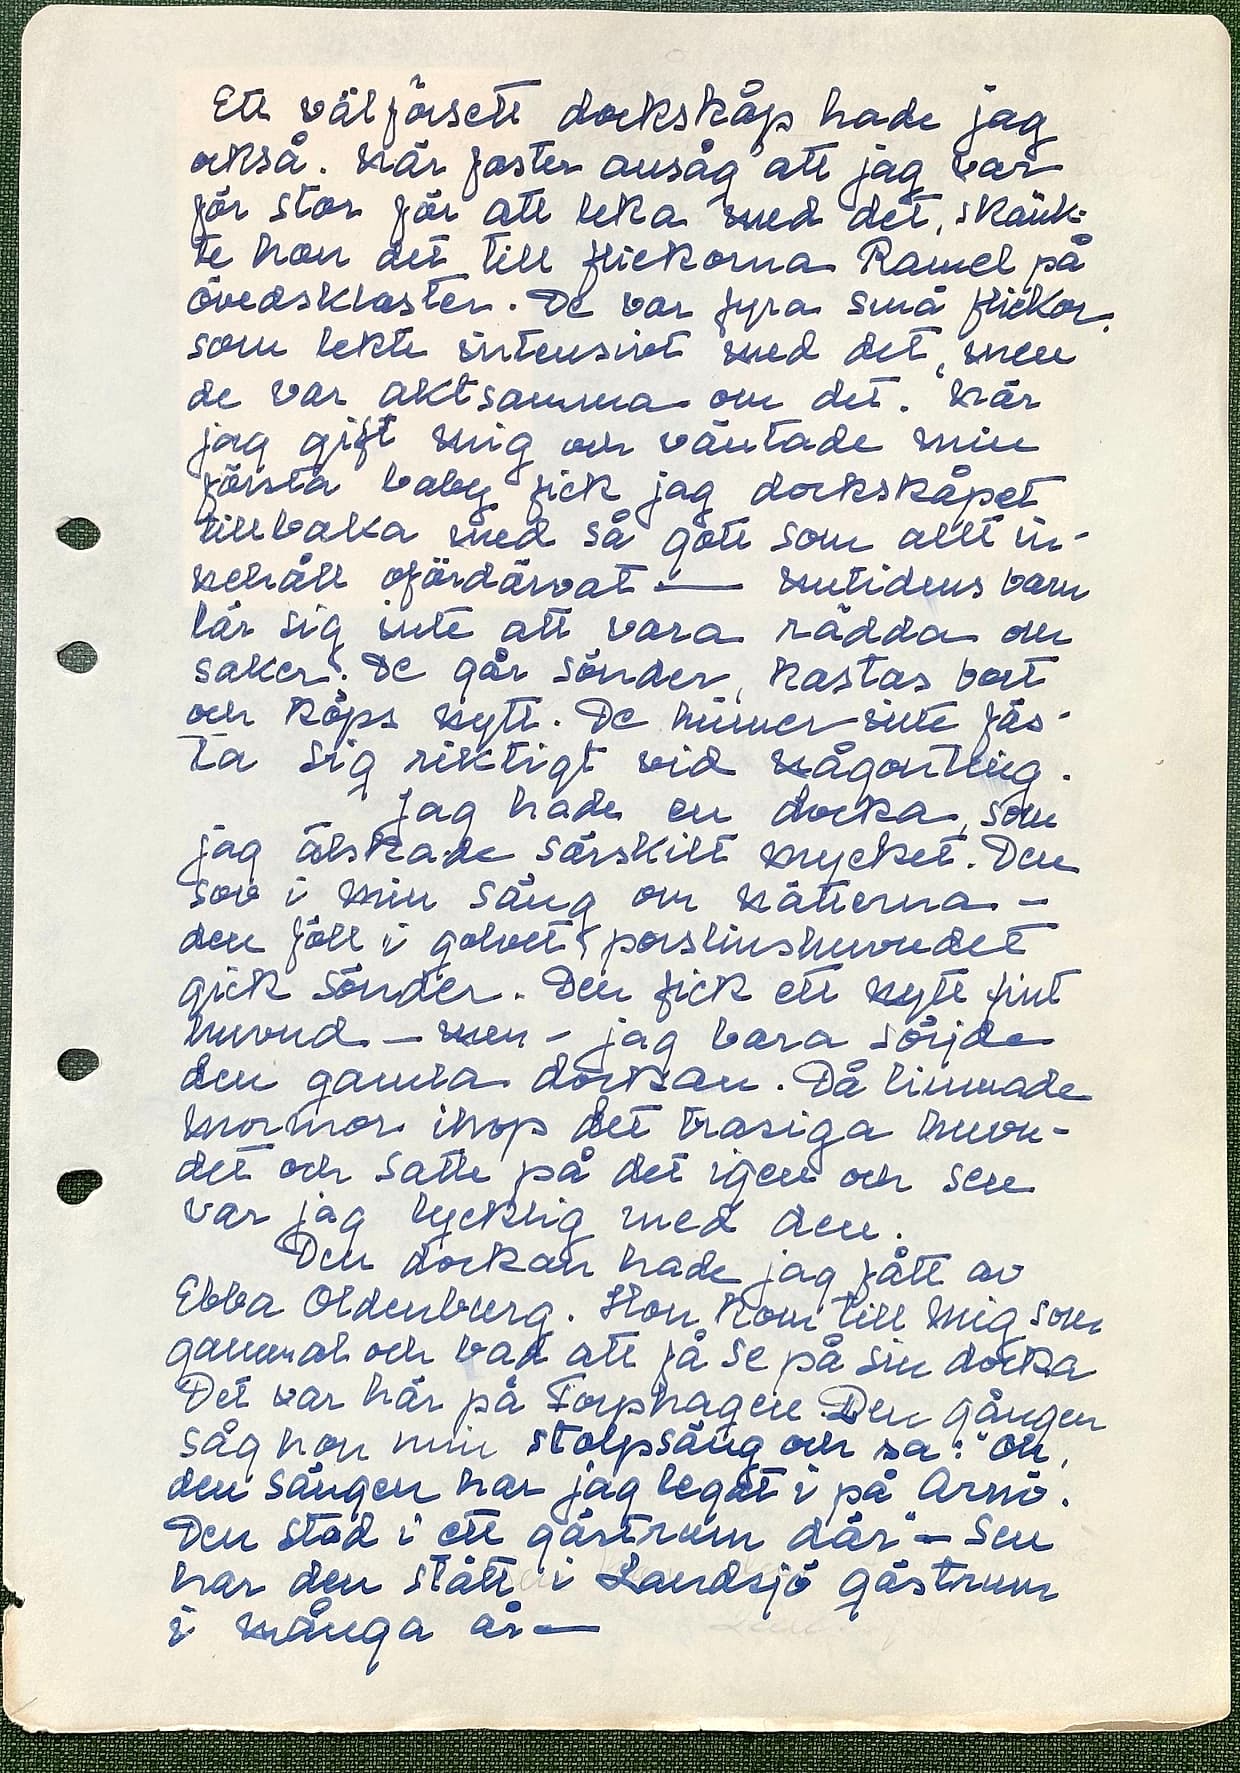 Ett välförsett dockskåp hade jag
också. När faster ansåg att jag var
för stor för att leka med det, skänk-
te hon det till flickorna Ramel på
Övedskloster. De var fyra små flickor,
som lekte intensivt med det, men
de var aktsamma om det. När
jag gift mig och väntade min
första baby fick jag dockskåpet
tillbaka med så gott som allt in-
nehåll ofördärvat — nutidens barn
lär sig inte att vara rädda om
saker. De går sönder, kastas bort
och köps nytt. De hinner inte fäs-
ta sig riktigt vid någonting.
Jag hade en docka, som
jag älskade särskilt mycket. Den
sov i min säng om nätterna —
den föll i golvet & porslinshuvudet
gick sönder. Den fick ett nytt fint
huvud — men — jag bara sörjde
den gamla dockan. Då limmade
mormor ihop det trasiga huvu-
det och satte på det igen och sen
var jag lycklig med den.
Den dockan hade jag fått av
Ebba Oldenburg. Hon kom till mig som
gammal och bad att få se på sin docka
Det var här på Forphagen. Den gången
såg hon min stolpsäng och sa: "Oh,
den sängen har jag legat i på Arnö.
Den stod i ett gästrum där" — Sen
har den stått i Landsjö gästrum
i många år —